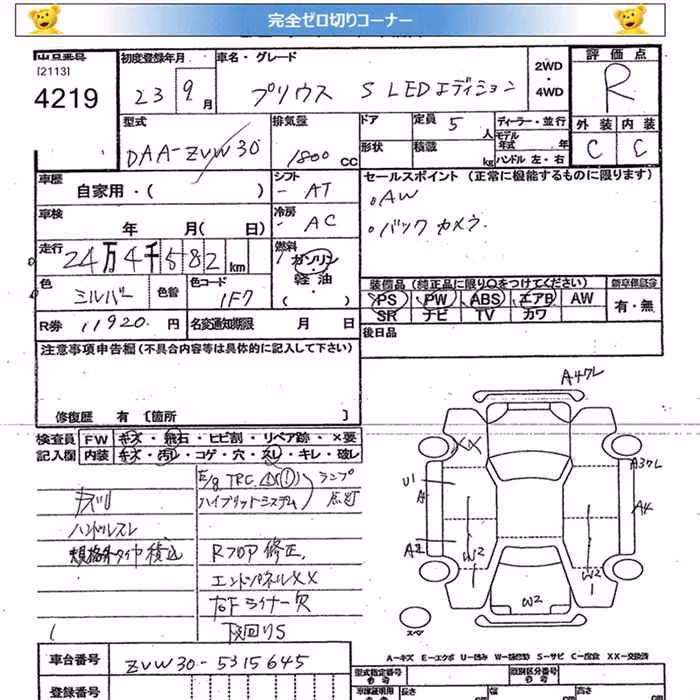 完全ゼロ切りコーナー
出品番号
[2113]
4219
初度登録年月
23 9月
車名・グレード
プリウス S LEDエディション
2WD
・
4WD
評価点
R
型式
DAA-ZVW30
排気量
1800 cc
ドア
定員 5 人
ディーラー・並行
モデル年式 年
形状
積載 kg
ハンドル 左・右
外装 内装
C C
車歴
自家用・( )
シフト
- AT
セールスポイント (正常に機能するものに限ります)
・AW
・バックカメラ
車検
年 月( 日)
冷房
- AC
走行
24万4千582km
燃料
ガソリン
・
軽油
・( )
色
シルバー
色替
色コード
1F7
装備品 (純正品に限り○をつけてください)
PS PW ABS エアB AW
SR ナビ TV カワ
新車保証書
有・無
R券 11920. 円
名変通知期限 月 日
後日品
注意事項申告欄 (不具合内容等は具体的に記入して下さい)
修復歴 有 〔箇所 〕
検査員
記入欄
FW キズ・飛石・ヒビ割・リペア跡・×要
内装 キズ・汚れ・コゲ・穴・スレ・キレ・破レ
ハンドルスレ
規格外タイヤ積込
E/g TRC
ハイブリットシステム
ランプ
点灯
Rフロア修正.
エンドパネルXX
右Fライナー欠
下回りS
A47レ
XX
U1
A
A2
W2
A37レ
A4
W2
W2
スペア
A-キズ E-エクボ U-凹み W-補修跡 S-サビ C-腐食 XX-交換済
車台番号
ZVW30-5315645
登録番号
型式指定番号
類別区分番号
長さ
幅
高さ
cm